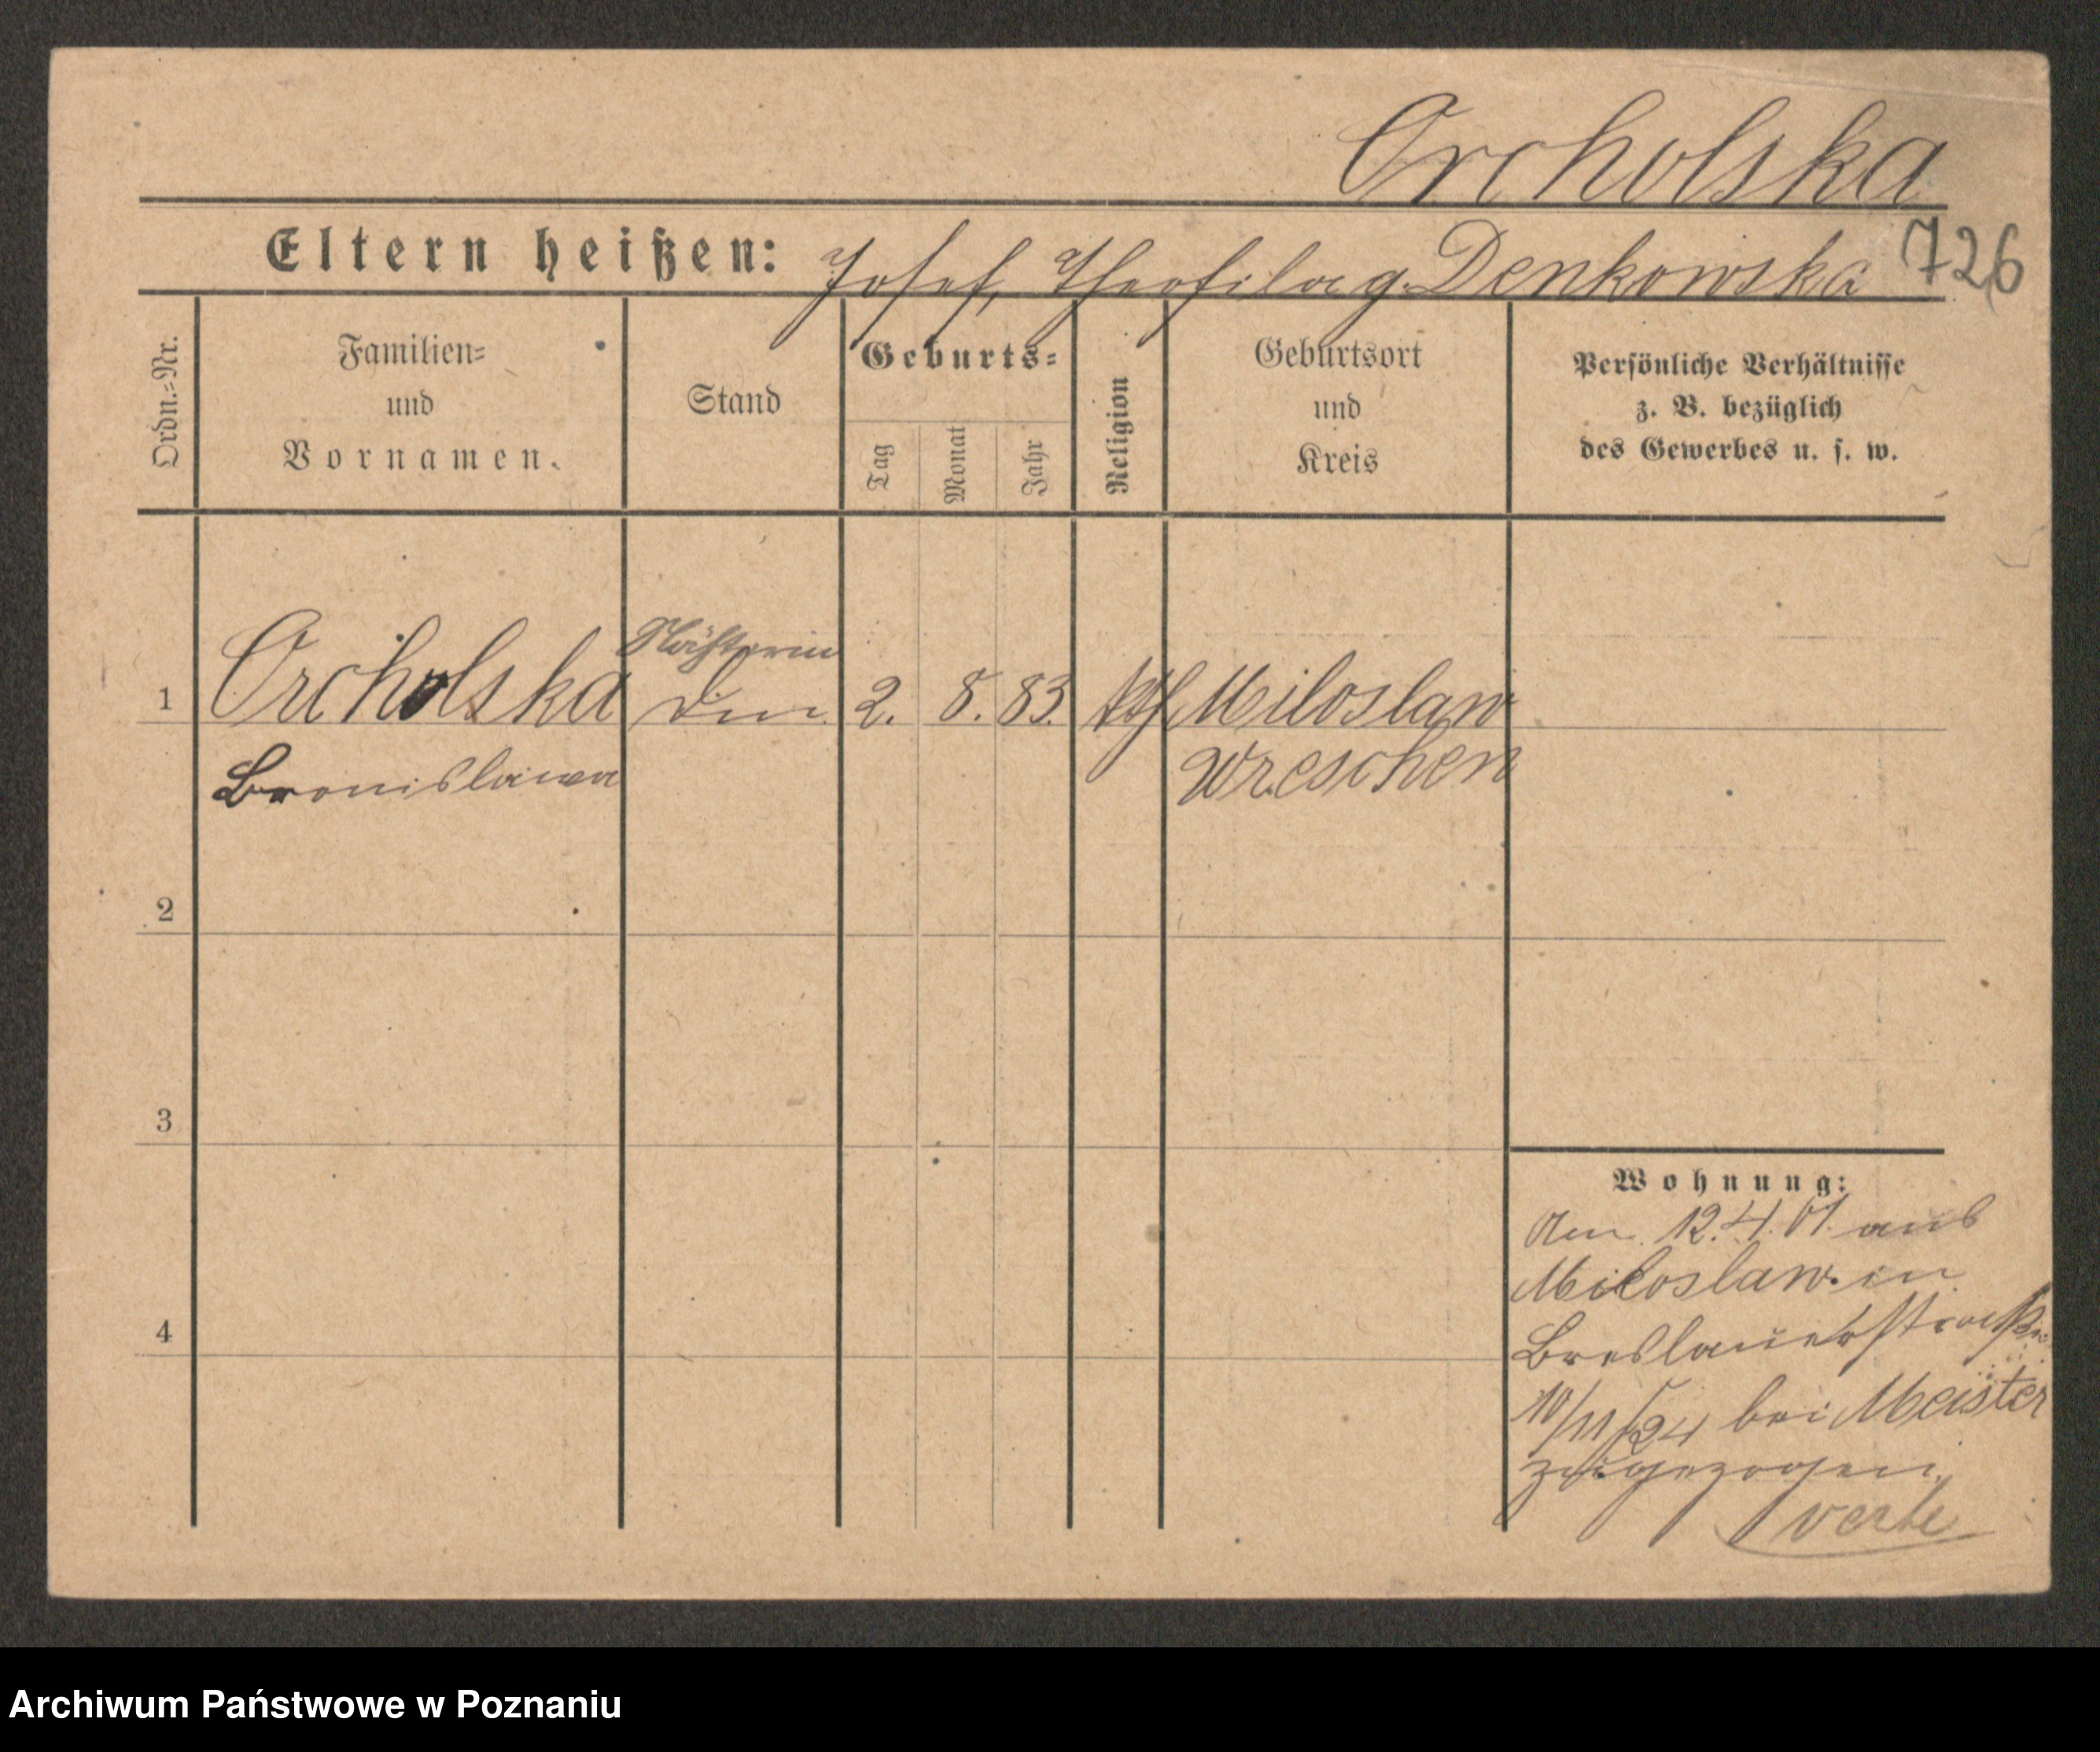 Orcholska
Eltern heißen: Josef, Theofila g. Denkowska 726
Ordn.=Nr.
Familien=
und
Vornamen.
Stand
Geburts=
Tag
Monat
Jahr
Religion
Geburtsort
und
Kreis
Persönliche Verhältnisse
z. B. bezüglich
des Gewerbes u. s. w.
Nähterin
1 Orcholska 2. 8. 83. kth Miloslaw
Bronislawa Wreschen
2
3
4
Wohnung:
Am 12.4.01. aus
Miloslaw in
Breslauerstraße
10/11/24 bei Meister
zugezogen.
verte
Archiwum Państwowe w Poznaniu